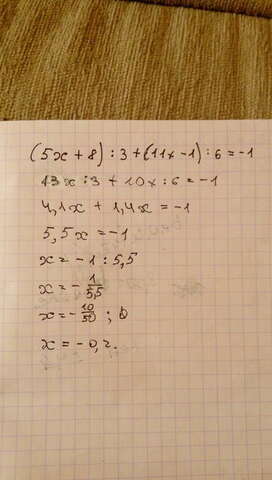 (5x + 8) : 3 + (11x - 1) : 6 = -1
13x : 3 + 10x : 6 = -1
4,1x + 1,4x = -1
5,5x = -1
x = -1 : 5,5
x = - 1/5,5
x = - 10/50 ;
x = -0,2.